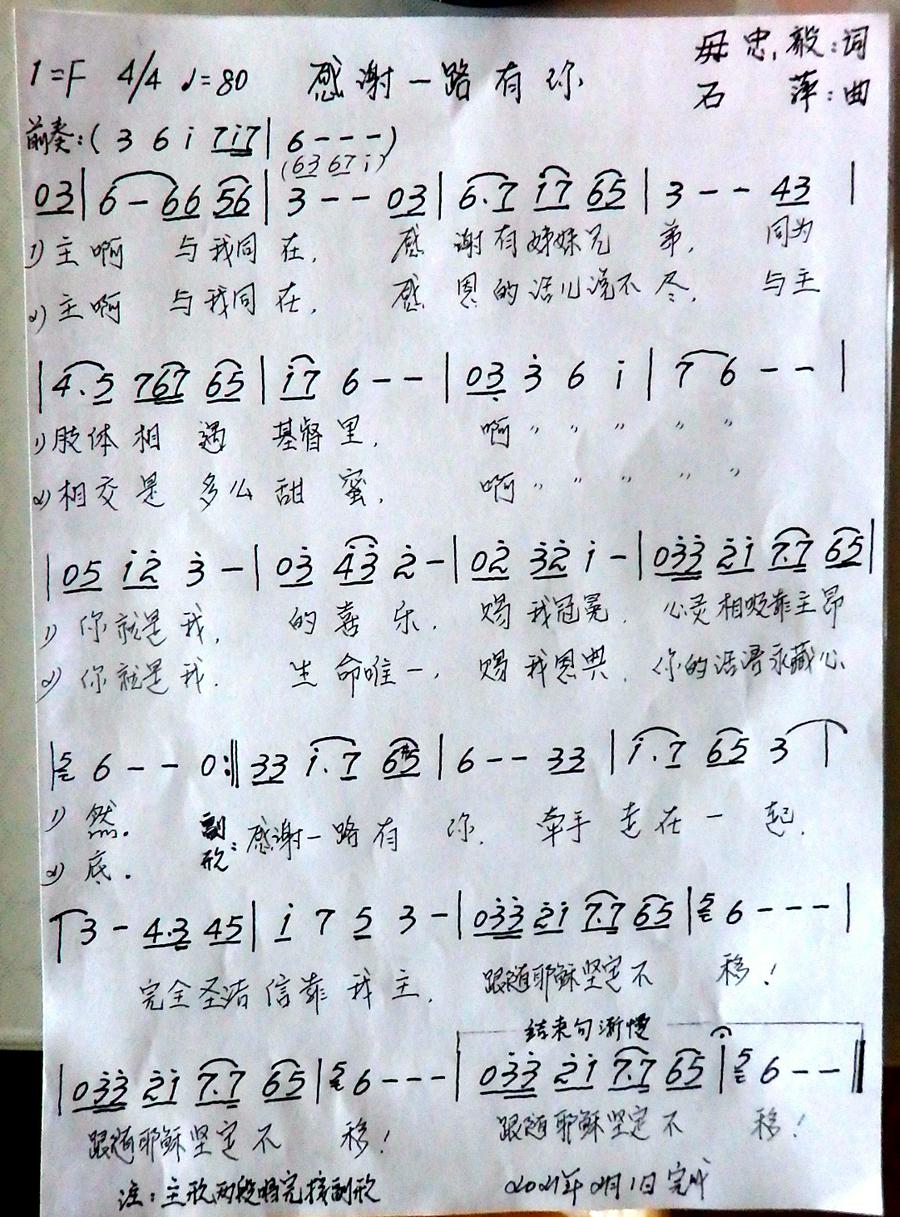 1=F 4/4 ♩=80 感谢一路有你 毋忠毅:词
石萍:曲
前奏:( 3 6 i 7i7 | 6 - - - )
(63 67 i)
03 | 6 - 66 56 | 3 - - 03 | 6.7 i7 65 | 3 - - 43 |
1) 主啊 与我同在, 感谢有姊妹兄弟, 同为
2) 主啊 与我同在, 感恩的话儿说不尽, 与主
| 4.5 767 65 | i7 6 - - | 03 3 6 i | 7 6 - - |
1) 肢体相遇 基督里, 啊 〃 〃 〃 〃 〃
2) 相交是多么甜蜜, 啊 〃 〃 〃 〃 〃
| 05 i2 3 - | 03 43 2 - | 02 32 i - | 033 2i 7.7 65 |
1) 你就是我, 的喜乐, 赐我冠冕, 心灵相吸靠主昂
2) 你就是我. 生命唯一, 赐我恩典, 你的话语永藏心
| 5 6 - - 0 :‖ 33 i.7 65 | 6 - - 33 | i.7 65 3 |
1) 然. 副歌: 感谢一路有你. 牵手走在一起.
2) 底.
| 3 - 4.3 45 | i 7 5 3 - | 033 2i 7.7 65 | 5 6 - - - |
完全圣洁信靠我主. 跟随耶稣坚定不移!
结束句渐慢
| 033 2i 7.7 65 | 5 6 - - - | 033 2i 7.7 65 | 5 6 - - ‖
跟随耶稣坚定不移! 跟随耶稣坚定不移!
注:主歌两段唱完接副歌 2021年2月1日完成